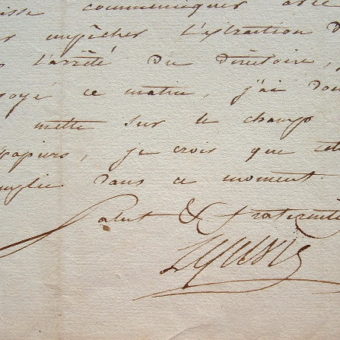 isse communiquer avec
s empêcher l'extraction d
l'arrêté du directoire,
voyé ce matin, j'ai don
mette sur le champ
papiers, je crois que cela
mplie dans ce moment
Salut & fraternité